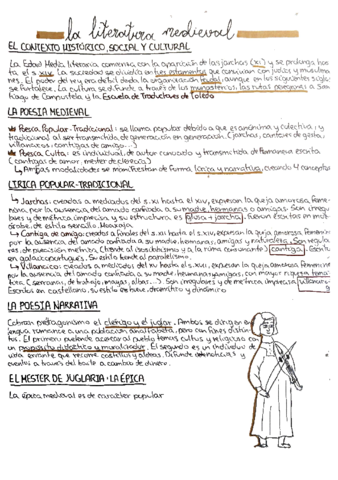 la literatura medieval
EL CONTEXTO HISTÓRICO, SOCIAL Y CULTURAL
La Edad Media literaria comienza con la aparición de las jarchas (XI) y se prolonga hasta
el s. XIV. La sociedad se dividía en tres estamentos que convivían con judíos y musulmanes.
El poder del rey era débil dada la organización feudal, aunque en los siguientes siglos
se fortalece. La cultura se difunde a través de los monasterios, las rutas peregrinas a San
tiago de Compostela y la Escuela de Traductores de Toledo
LA POESÍA MEDIEVAL
Poesía Popular-Tradicional: se llama popular debido a que es anónima y colectiva, y
tradicional al ser transmitida de generación en generación (jarchas, cantares de gesta,
villancicos, cantigas de amigo...)
Poesía Culta: es individual, de autor conocido y transmitida de forma escrita
(cantigas de amor, mester de clerecía)
Ambas modalidades se manifiestan de forma lírica y narrativa, creando 4 conceptos
LÍRICA POPULAR-TRADICIONAL
Jarchas: creadas a mediados del s. XI hasta el XIV, expresan la queja amorosa femenina,
por la ausencia del amado confiada a su madre, hermanas o amigas. Son irregulares
y de métrica imprecisa, y su estructura es
de estilo sencillo.
Cantiga de amigo: creadas a finales del s. XII hasta el s. XIV, expresan la queja amorosa femenina
por la ausencia del amado confiada a su madre, hermanas, amigas y naturaleza. Son regulares
de precisión métrica
en galaicoportugués. Su estilo tiende al paralelismo.
Villancico: creadas a mediados del XV hasta el s. XVI, expresan la queja amorosa femenina
por la ausencia del amado confiada a su madre, hermanas, amigas, con mayor riqueza temática
(serranas, de trabajo, mayas, albas...). Son irregulares y de métrica imprecisa, villancico
Escritos en castellano, su estilo es breve, dramático y dinámico
LA POESÍA NARRATIVA
Cobran protagonismo el clérigo y el juglar. Ambos se dirigen en
lengua romance a una población analfabeta, pero con fines distintos.
El primero pretende acercar al pueblo temas cultos y religiosos con
un propósito didáctico y moralizador. El segundo es un individuo de
vida errante que recorre castillos y aldeas. Difunde noticias y
eventos a través del baile a cambio de dinero.
EL MESTER DE JUGLARÍA: LA ÉPICA
La épica medieval es de carácter popular